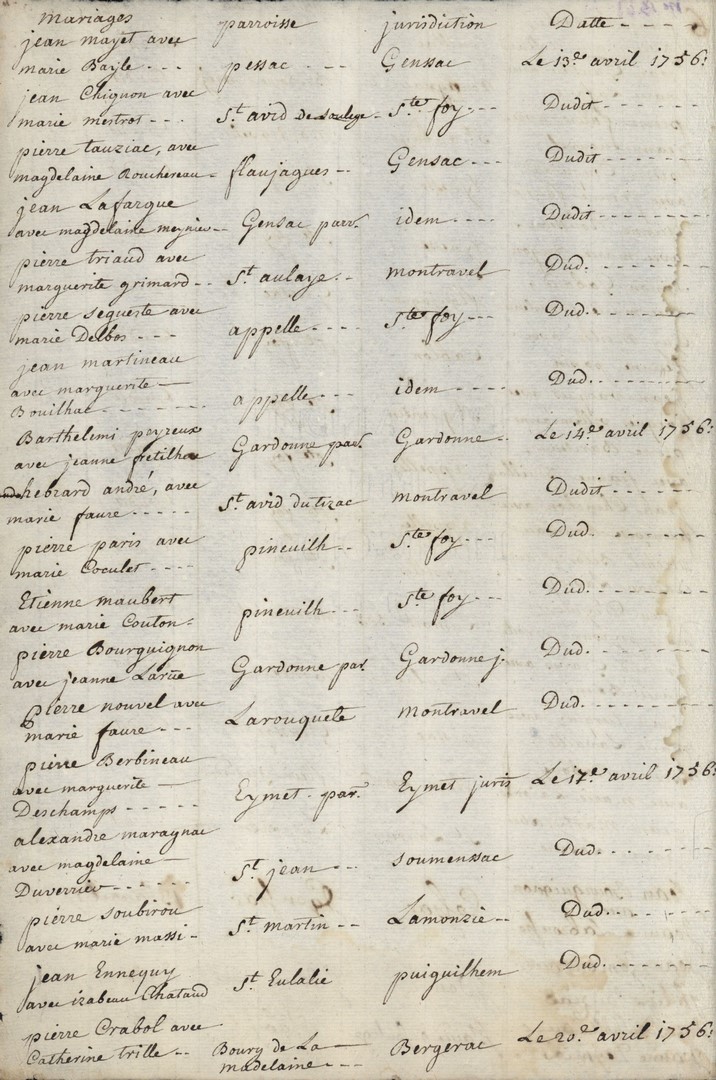 mariages parroisse jurisdiction Datte - - - -
jean mayet avec
marie Bayle - - - pessac - - - Gensac Le 13e avril 1756:
jean Chignon avec
marie mestros - - - St avid de soulege - Ste foy - - - Dudit - - - - -
pierre tauziac, avec
magdelaine Rouchereau - flaujagues - - Gensac - - - Dudit - - - - -
jean Lafargue
avec magdelaine meynieu - - Gensac parr. idem - - - - Dudit - - - - -
pierre triaud avec
marguerite grimard - - St aulaye - - montravel Dud. - - - - - -
pierre segueste avec
marie Delbos - - - appelle - - - - Ste foy - - - Dud. - - - - - -
jean martineau
avec marguerite —
Bouilhac - - - - - - - appelle - - - idem - - - - Dud. - - - - - -
Barthelemi peyreux
avec jeanne fretilhere Gardonne par. Gardonne - - Le 14e avril 1756:
hebrard andré, avec
marie faure - - - - - St avid du tizac montravel Dudit - - - - - -
pierre paris avec
marie Coculet - - - - pineuilh - - Ste foy - - - Dud. - - - - - -
Etienne maubert
avec marie Couton - pineuilh - - - Ste foy - - - Dud. - - - - - -
pierre Bourguignon
avec jeanne Larüe Gardonne par. Gardonne j. Dud. - - - - - -
pierre nouvel avec
marie faure - - - Larouquete montravel Dud. - - - - - -
pierre Berbineau
avec marguerite —
Deschamps - - - - - Eymet - par. Eymet juris Le 17e avril 1756:
alexandre maragnac
avec magdelaine —
Duverrieu - - - - - - St jean - - - soumensac Dud. - - - - - -
pierre soubirou
avec marie massi - St martin - - Lamonzie - - Dud. - - - - - -
jean Ennequy
avec izabeau Chataud St Eulalie puiguilhem Dud. - - - - - -
pierre Crabol avec
Catherine trille - - Bourg de La — Bergerac Le 20e avril 1756:
madelaine - - -